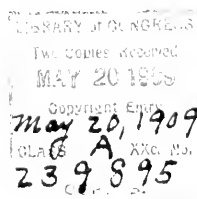 LIBRARY of CONGRESS
Two Copies Received
MAY 20 1909
Copyright Entry
May 20, 1909
CLASS A XXc. No.
239895